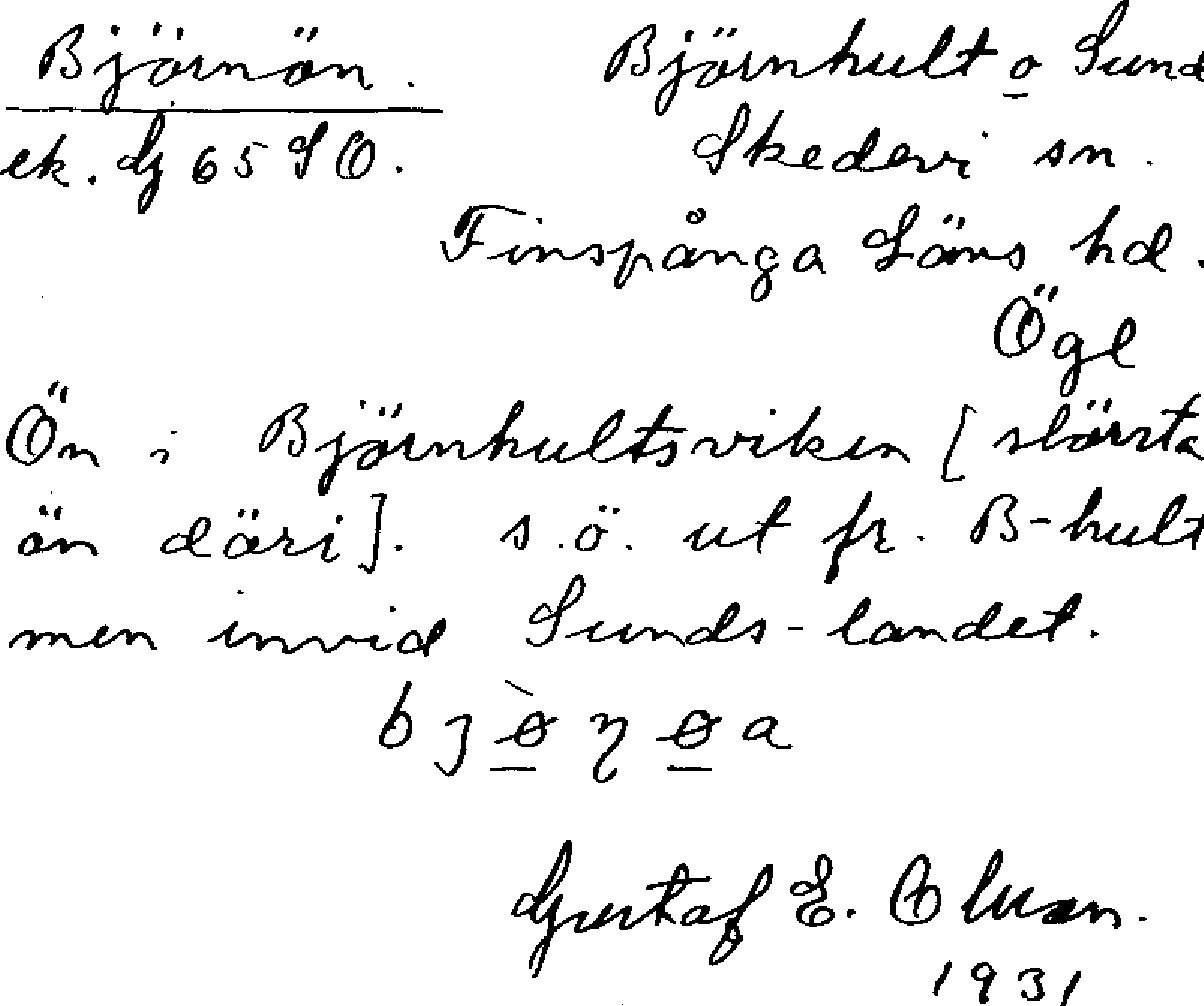 Björnön. Björnhult o Sund
ek. Gj 65 SO. Skedevi sn.
Finspånga Läns hd.
Ögl
Ön i Björnhultsviken [största
ön däri]. s.ö. ut fr. B-hult
men invid Sunds-landet.
Gustaf E. Olsson.
1931